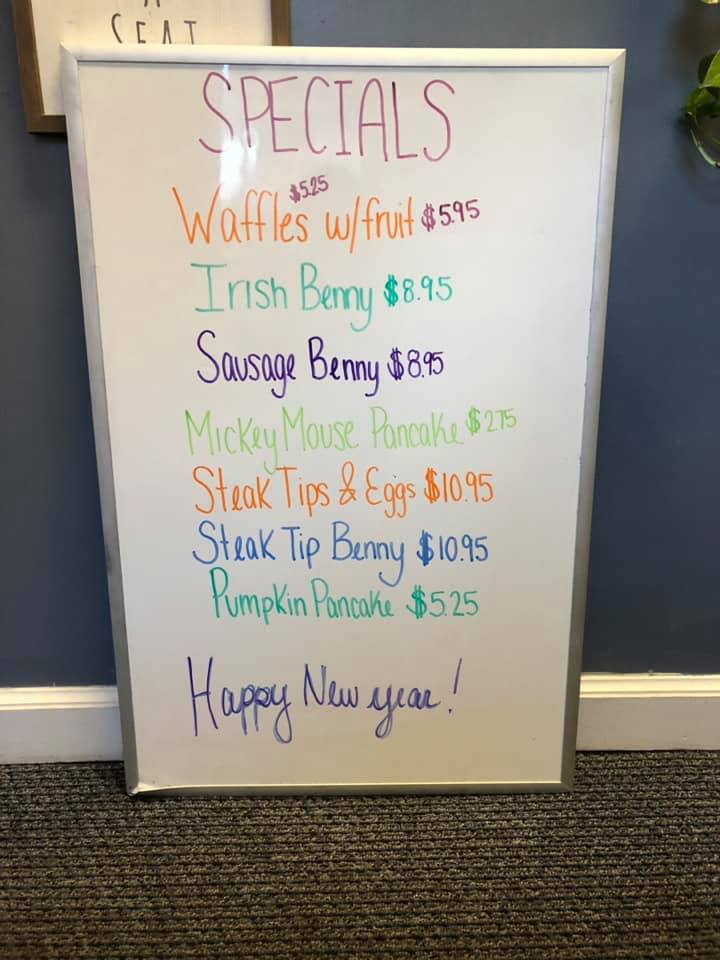 SEAT
SPECIALS
$5.25
Waffles w/fruit $5.95
Irish Benny $8.95
Sausage Benny $8.95
Mickey Mouse Pancake $2.75
Steak Tips & Eggs $10.95
Steak Tip Benny $10.95
Pumpkin Pancake $5.25
Happy New year!